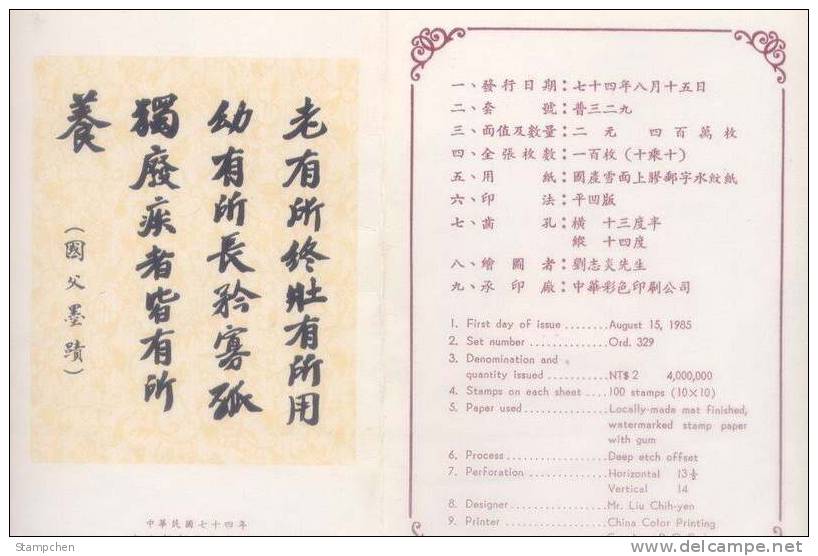 老有所終壯有所用
幼有所長矜寡孤
獨廢疾者皆有所
養
(國父墨蹟)
中華民國七十四年
一、發行日期：七十四年八月十五日
二、套號：普三二九
三、面值及數量：二元 四百萬枚
四、全張枚數：一百枚(十乘十)
五、用紙：國產雪面上膠郵字水紋紙
六、印法：平凹版
七、齒孔：橫 十三度半
縱 十四度
八、繪圖者：劉志炎先生
九、承印廠：中華彩色印刷公司
1. First day of issue ........ August 15, 1985
2. Set number .............. Ord. 329
3. Denomination and
quantity issued ........... NT$ 2 4,000,000
4. Stamps on each sheet .... 100 stamps (10×10)
5. Paper used ............... Locally-made mat finished,
watermarked stamp paper
with gum
6. Process .................. Deep etch offset
7. Perforation .............. Horizontal 13½
Vertical 14
8. Designer ................. Mr. Liu Chih-yen
9. Printer .................. China Color Printing
Stampchen
www.delcampe.net